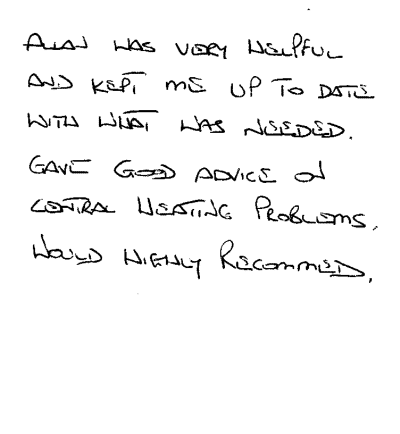 ALAN WAS VERY HELPFUL
AND KEPT ME UP TO DATE
WITH WHAT WAS NEEDED.
GAVE GOOD ADVICE ON
CENTRAL HEATING PROBLEMS.
WOULD HIGHLY RECOMMED.